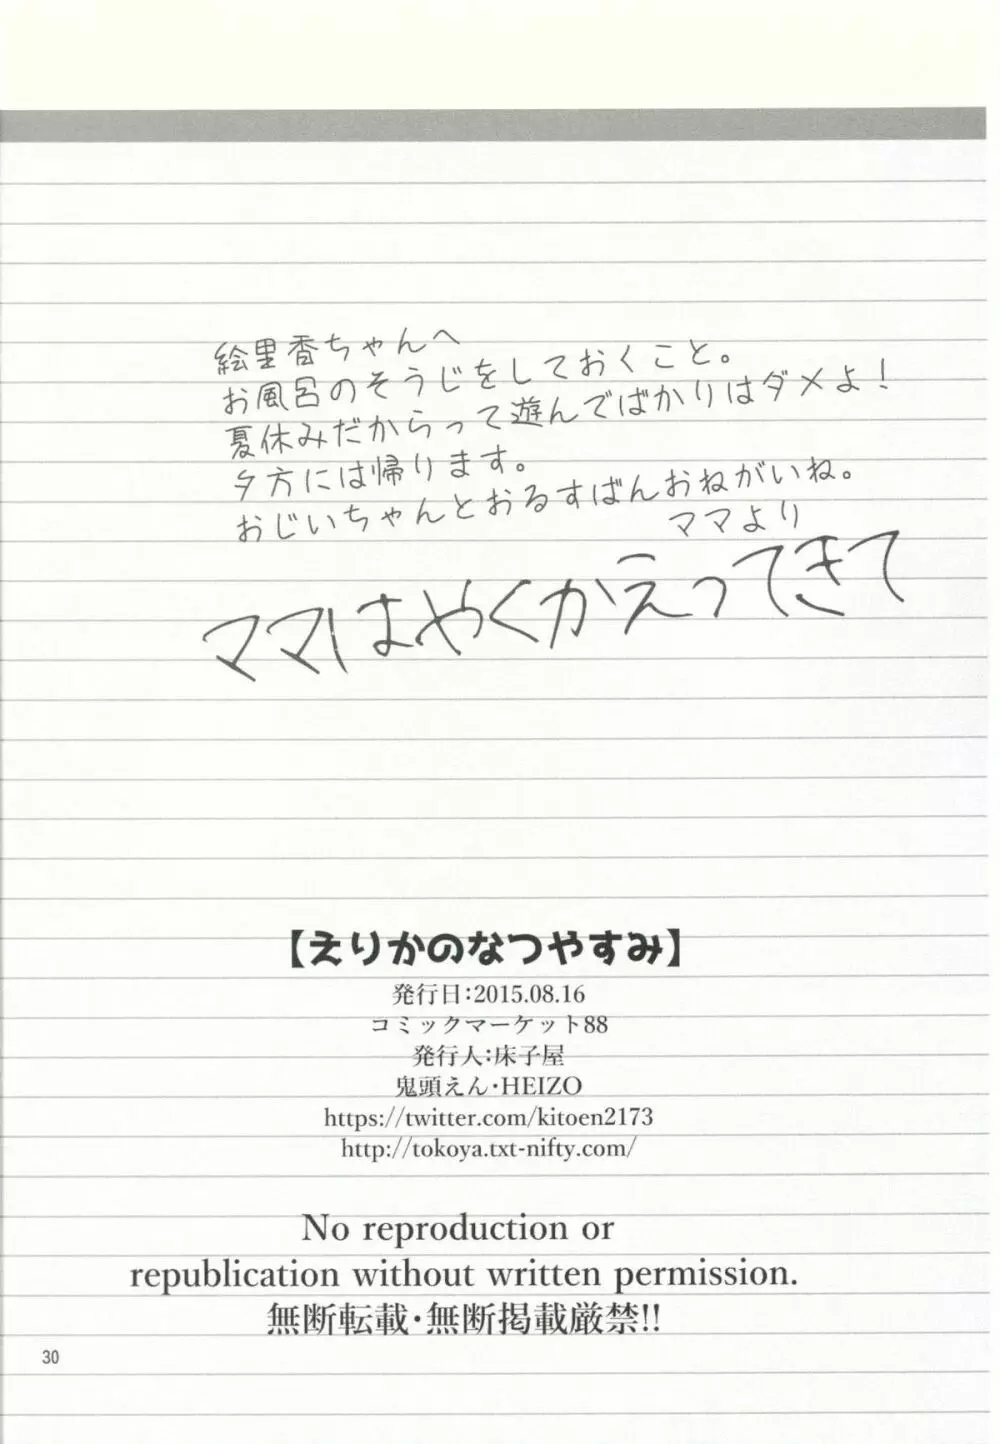 絵里香ちゃんへ
お風呂のそうじをしておくこと。
夏休みだからって遊んでばかりはダメよ！
夕方には帰ります。
おじいちゃんとおるすばんおねがいね。
ママより
ママはやくかえってきて
【えりかのなつやすみ】
発行日:2015.08.16
コミックマーケット88
発行人:床子屋
鬼頭えん・HEIZO
https://twitter.com/kitoen2173
http://tokoya.txt-nifty.com/
No reproduction or
republication without written permission.
無断転載・無断掲載厳禁!!
30